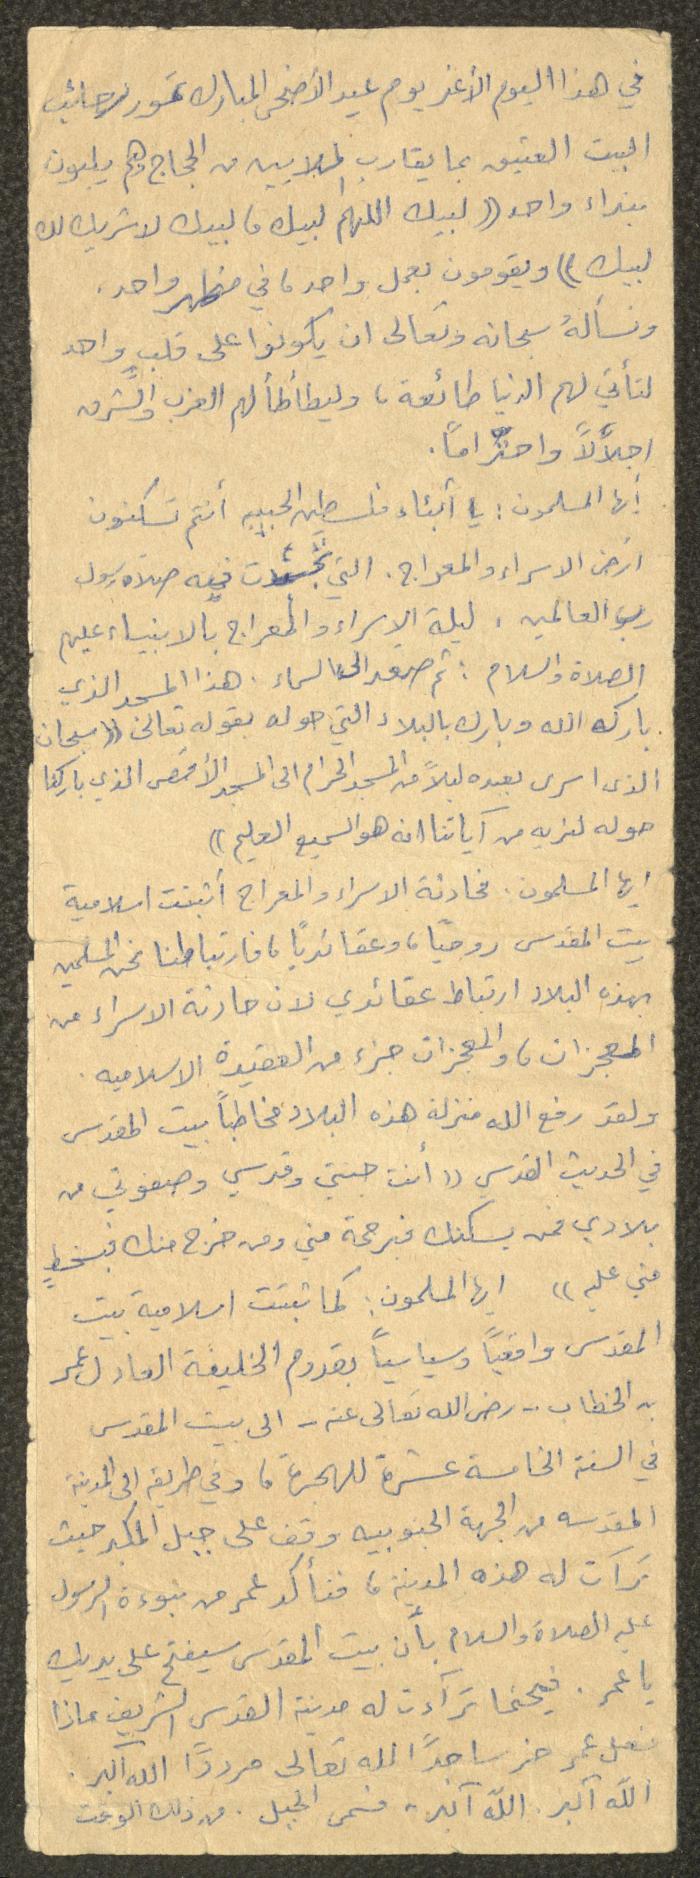 في هذا اليوم الأغر يوم عيد الأضحى المبارك تمور رحائب
البيت العتيق بما يقارب الملايين من الحجاج وهم يلبون
بنداء واحد (( لبيك اللهم لبيك ، لبيك لا شريك لك
لبيك )) ويقومون بعمل واحد ، في مظهر واحد ،
ونسأله سبحانه وتعالى ان يكونوا على قلب واحد
لتأتي لهم الدنيا طائعة ، وليطأطأ لهم الغرب والشرق
اجلالاً واحتراماً .
أيها المسلمون : يا أبناء فلسطين الحبيبه أنتم تسكنون
ارض الاسراء والمعراج . التي فيه صلاة رسول
رب العالمين ، ليلة الإسراء والمعراج بالانبياء عليهم
الصلاة والسلام : ثم صعد الى السماء . هذا المسجد الذي
باركه الله وبارك بالبلاد التي حوله بقوله تعالى (( سبحان
الذى اسرى بعبده ليلاً من المسجد الحرام الى المسجد الأقصى الذي باركنا
حوله لنريه من آياتنا انه هو السميع العليم ))
ايها المسلمون . فحادثة الاسراء والمعراج أثبتت اسلامية
بيت المقدس روحيًا ، وعقائديًا ، فارتباطنا نحن المسلمين
بهذه البلاد ارتباط عقائدي لان حادثة الاسراء من
المعجزات ، والمعجزات جزء من العقيدة الاسلاميه .
ولقد رفع الله منزلة هذه البلاد مخاطباً بيت المقدس
في الحديث القدسي (( أنت جنتي وقدسي وصفوتي من
بلادي فمن يسكنك فبرحمة مني ومن خرج منك فبسخط
مني عليه )) ايها المسلمون : كما ثبتت اسلامية بيت
المقدس واقعياً وسياسياً بقدوم الخليفة العادل عمر
بن الخطاب - رضي الله تعالى عنه - الى بيت المقدس
في السنة الخامسة عشرة للهجرة ، وفي طريقه الى المدينة
المقدسه من الجهة الجنوبيه وقف على جبل المكبر حيث
ترآت له هذه المدينة ، فتأكد عمر من نبوءة الرسول
عليه الصلاة والسلام بأن بيت المقدس سيفتح على يديك
يا عمر . فحينما ترآءت له مدينة القدس الشريف ماذا
فعل عمر خر ساجدًا لله تعالى مرددًا الله أكبر .
الله أكبر . الله أكبر . فسمى الجبل . من ذلك الوقت